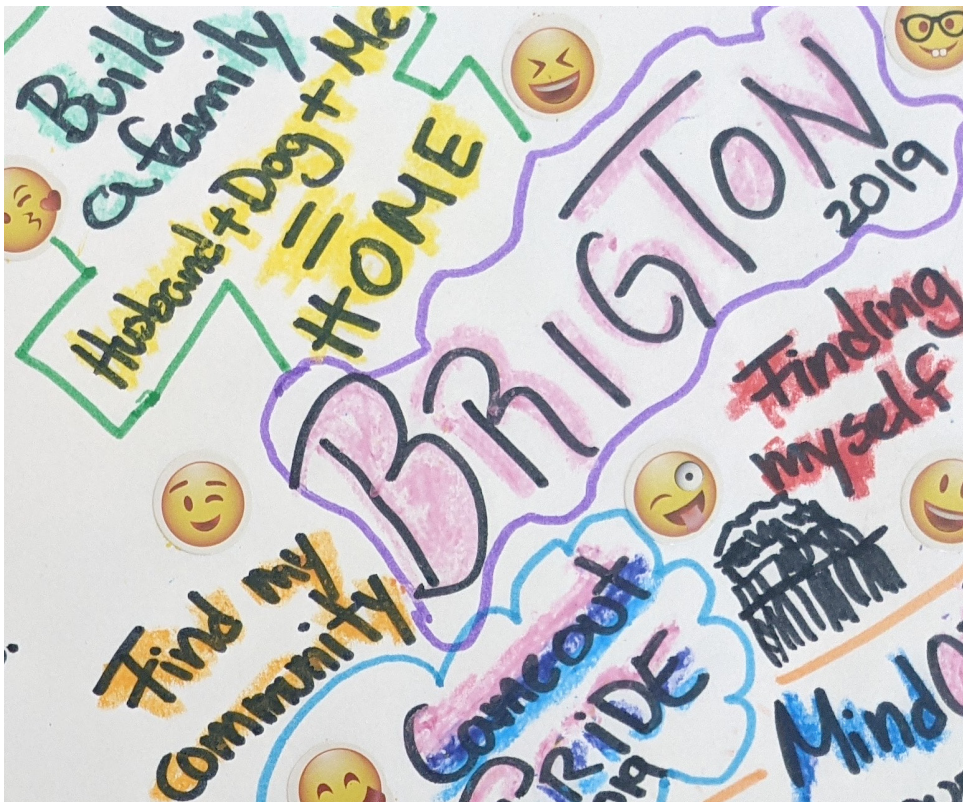 Build
a family
Husband + Dog + Me
= HOME
BRIGTON
2019
Finding
myself
Find my
community
Come out
PRIDE
Mind